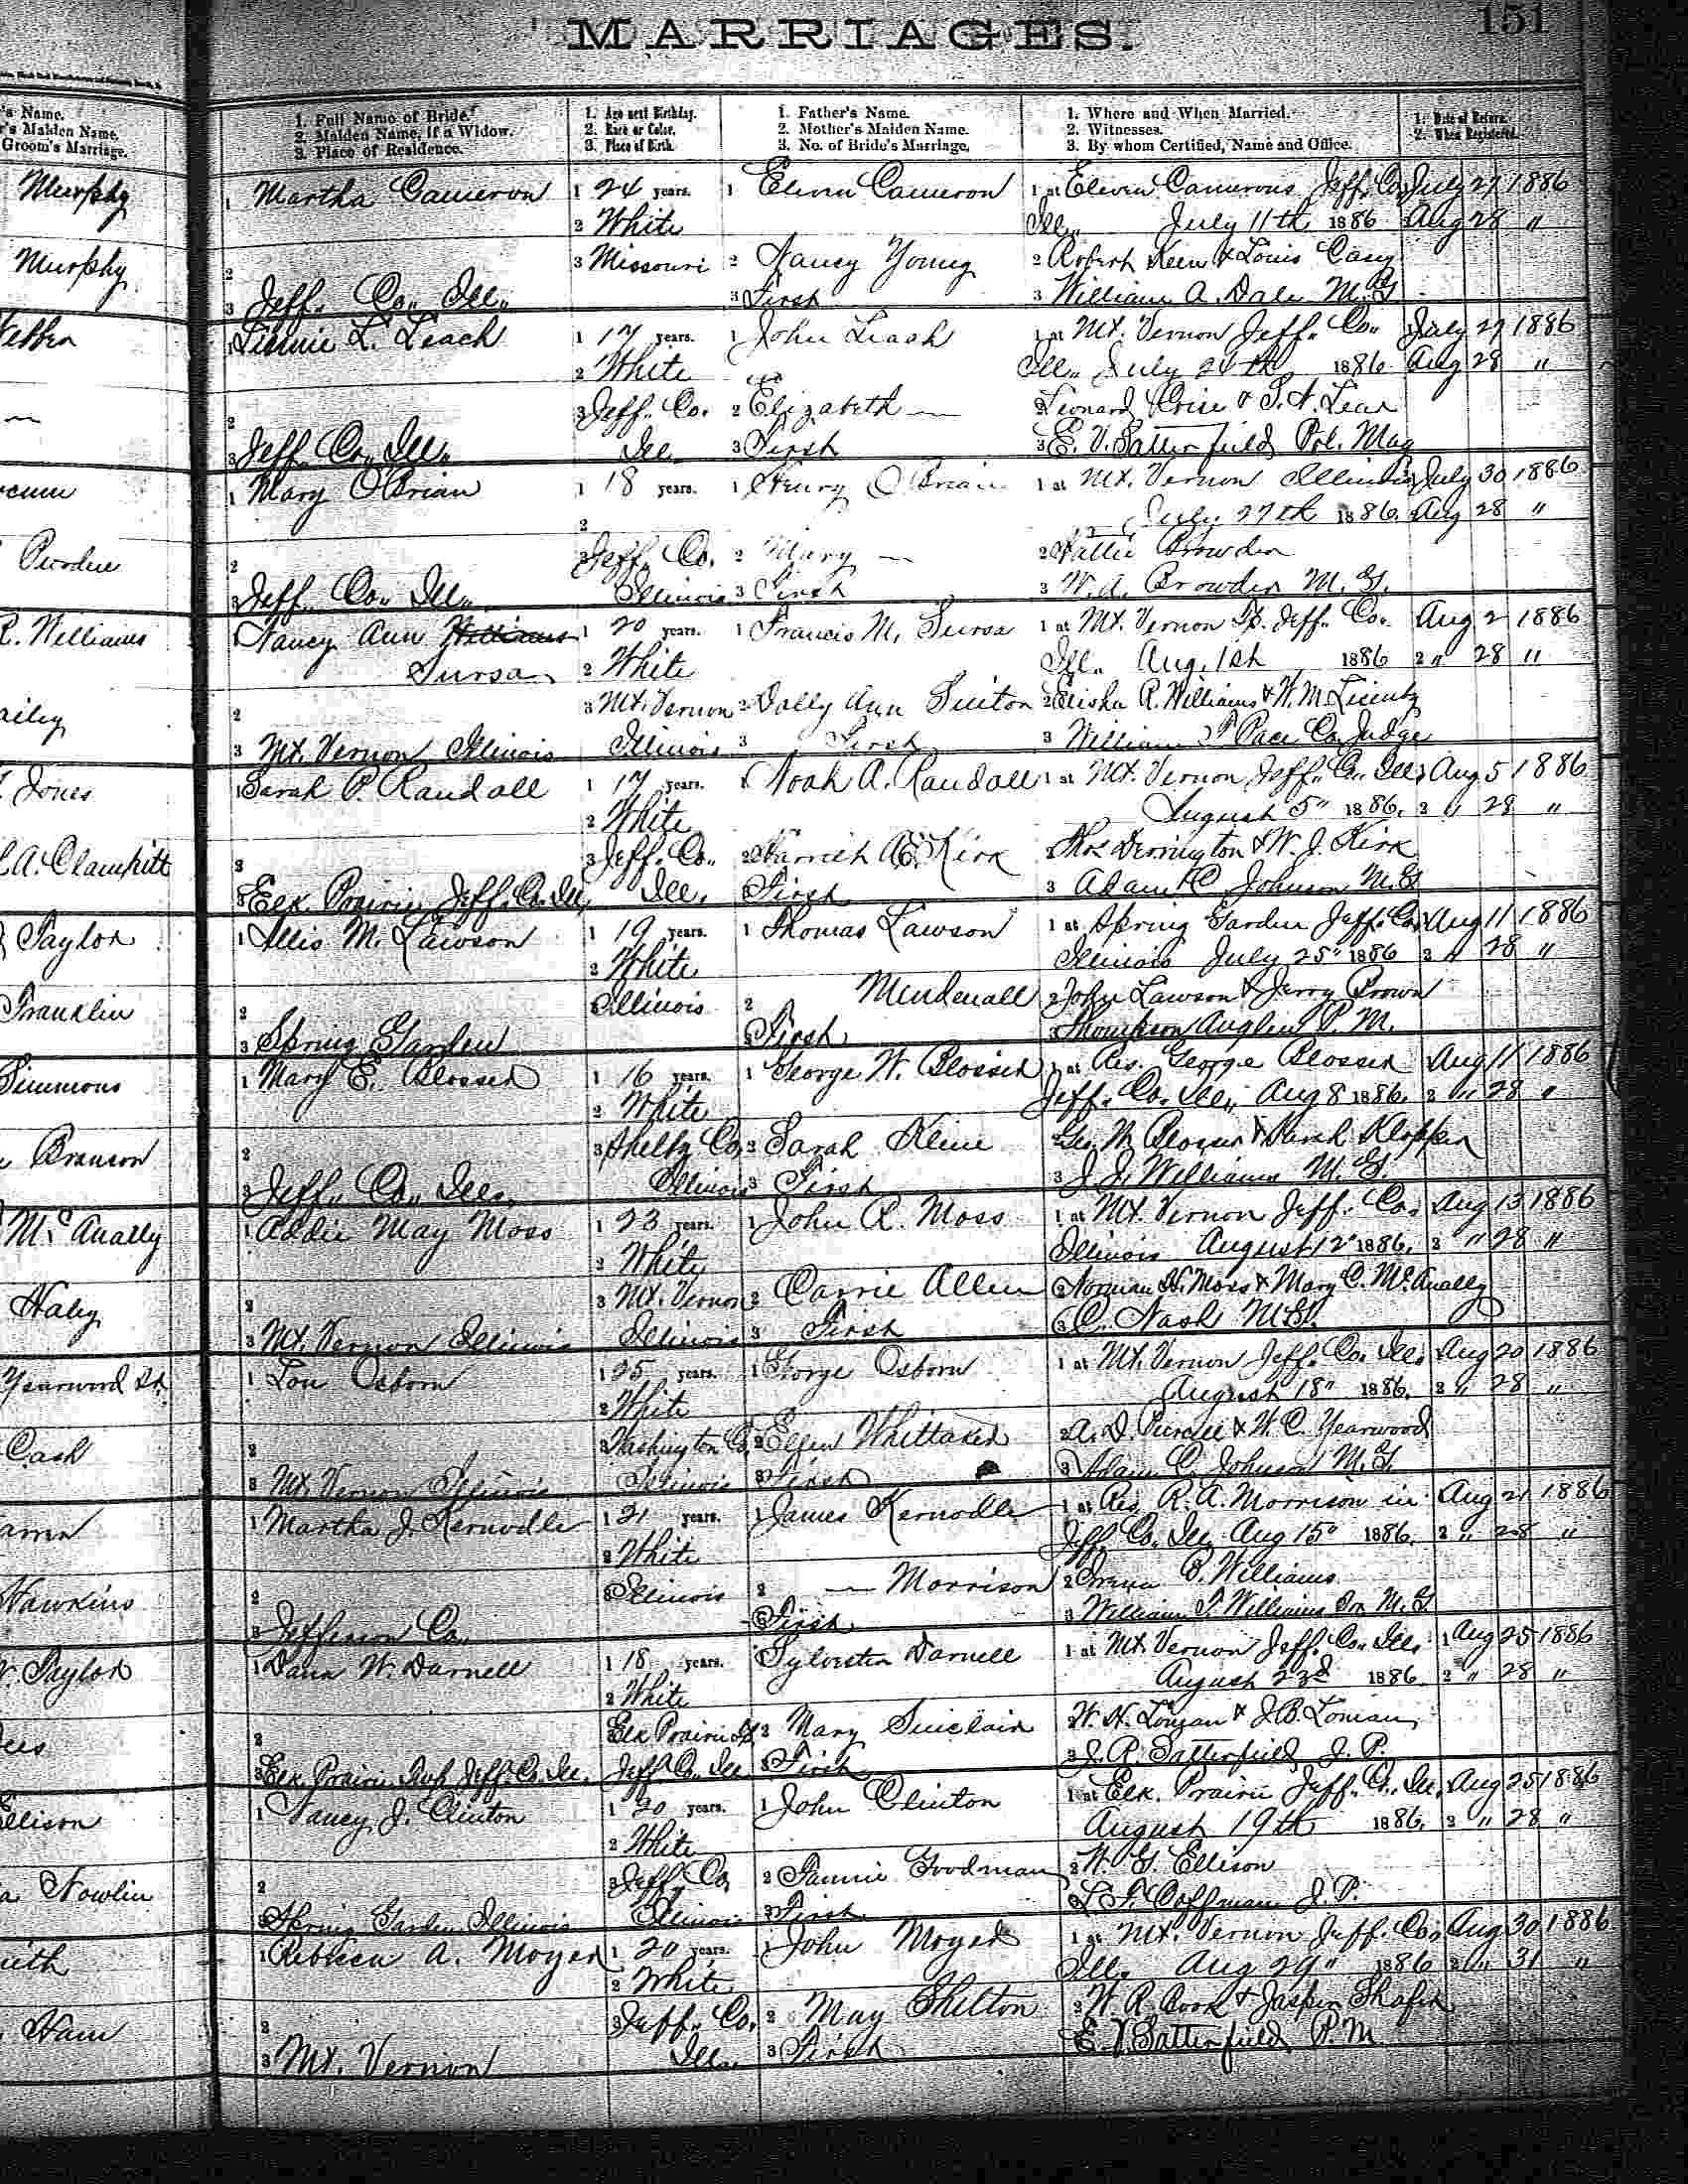 MARRIAGES.
151
's Name.
r's Maiden Name.
Groom's Marriage.
1. Full Name of Bride.
2. Maiden Name, if a Widow.
3. Place of Residence.
1. Age next Birthday.
2. Race or Color.
3. Place of Birth.
1. Father's Name.
2. Mother's Maiden Name.
3. No. of Bride's Marriage.
1. Where and When Married.
2. Witnesses.
3. By whom Certified, Name and Office.
1. Date of Return.
2. When Registered.
Murphy
1 Martha Cameron 1 24 years. 1 Elven Cameron 1 at Elven Camerons Jeff. Co. July 27 1886
2 White Ill. July 11th 1886 Aug 28 "
Murphy
2 3 Missouri 2 Nancy Young 2 Robert Keen & Louis Casy
3 Jeff. Co. Ill. 3 First 3 William A. Dale M.G.
1 L. Leach 1 17 years. 1 John Leash 1 at Mt. Vernon Jeff. Co. July 27 1886
2 White Ill. July 1886 Aug 28 "
2 3 Jeff. Co. 2 Elizabeth — 2 Leonard & Lear
3 Jeff. Co. Ill. Ill. 3 First 3 E. V. Satterfield Pol. Mag
1 Mary O'Brian 1 18 years. 1 Henry O'Brian 1 at Mt. Vernon Illinois July 30 1886
2 July 27th 1886. Aug 28 "
Purdue
2 3 Jeff. Co. 2 Mary — 2 Browder
3 Jeff. Co. Ill. Illinois 3 First 3 W. A. Browder M. G.
R. Williams
Nancy Ann Williams 1 20 years. 1 Francis M. Sursa 1 at Mt. Vernon Tp. Jeff. Co. Aug 2 1886
Sursa 2 White Ill. Aug. 1st 1886 2 " 28 "
ailey
2 3 Mt. Vernon 2 Dolly Ann 2 Elisha R. Williams & W. M.
3 Mt. Vernon Illinois Illinois 3 First 3 William T Pace Co. Judge
Jones
1 Sarah P. Randall 1 17 years. 1 Noah A. Randall 1 at Mt. Vernon Jeff. Co. Ill. Aug 5 1886
2 White August 5" 1886. 2 " 28 "
A. Clampitt
2 3 Jeff. Co. 2 Kirk 2 Thos Derrington & W. J. Kirk
3 Elk Prairie Jeff. Co. Ill. Ill. 3 First 3 Adam C Johnson M. G.
Taylor
1 M. Lawson 1 19 years. 1 Thomas Lawson 1 at Spring Garden Jeff. Co. Aug 11 1886
2 White Illinois July 25" 1886 2 " 28 "
Franklin
2 3 Illinois 2 Mendenall 2 John Lawson & Jerry Brown
3 Spring Garden 3 First 3 Thompson P. M.
Simmons
1 Mary E. Blosser 1 16 years. 1 George W. Blosser 1 at Res. George Blosser Aug 11 1886
2 White Jeff. Co. Ill. Aug 8 1886. 2 " 28 "
Branson
2 3 Shelby Co. 2 Sarah Kline 2 Geo. W Blosser & Sarah
3 Jeff. Co. Ill. Illinois 3 First 3 J. J. Williams M. G.
McAnally
1 Addie May Moss 1 23 years. 1 John R. Moss 1 at Mt. Vernon Jeff. Co. Aug 13 1886
2 White Illinois August 12" 1886. 2 " 28 "
Haley
2 3 Mt. Vernon 2 Carrie Allen 2 Norman H. Moss & Mary C. McAnally
3 Mt. Vernon Illinois Illinois 3 First 3 C. Nash M.G.
Yearwood
1 Lou Osborn 1 25 years. 1 George Osborn 1 at Mt. Vernon Jeff. Co. Ill. Aug 20 1886
2 White August 18" 1886. 2 " 28 "
Cash
2 3 Washington Co. 2 Ellen Whittaker 2 A. D. & W. C. Yearwood
3 Mt. Vernon Illinois Illinois 3 First 3 Adam C. Johnson M. G.
1 Martha J. Kernodle 1 21 years. 1 James Kernodle 1 at Res R. A. Morrison in Aug 21 1886
2 White Jeff. Co. Ill. Aug 15" 1886. 2 " 28 "
Hawkins
2 3 Illinois 2 — Morrison 2 B. Williams
3 Jefferson Co. 3 First 3 William T. Williams M. G.
Taylor
1 W. Darnell 1 18 years. 1 Sylvester Darnell 1 at Mt. Vernon Jeff. Co. Ill. 1 Aug 25 1886
2 White August 23d 1886. 2 " 28 "
2 3 Elk Prairie Tp. 2 Mary Sinclair 2 W. H. & J. B.
3 Elk Prairie Twp Jeff. Co. Ill. Jeff. Co. Ill 3 First 3 J. R. Satterfield J. P.
Ellison
1 Nancy J. Clinton 1 20 years. 1 John Clinton 1 at Elk Prairie Jeff. Co. Ill. Aug 25 1886
2 White August 19th 1886. 2 " 28 "
Nowlin
2 3 Jeff. Co. 2 Fannie Goodman 2 W. G. Ellison
3 Spring Garden Illinois Illinois 3 First L. F. Coffman J. P.
1 Rebecca A. Moyer 1 20 years. 1 John Moyer 1 at Mt. Vernon Jeff. Co. Aug 30 1886
2 White Ill. Aug 29" 1886 2 " 31 "
Ham
2 3 Jeff. Co. 2 May Shelton 2 W. R. Cook & Jasper Shafer
3 Mt. Vernon Ill. 3 First E. V. Satterfield P. M